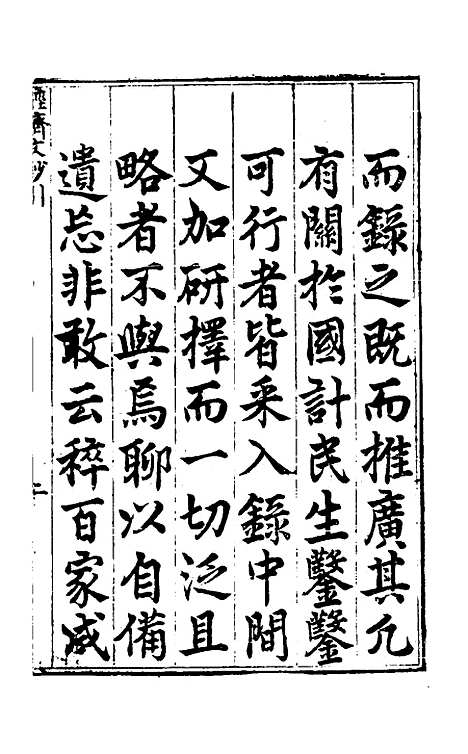 而錄之既而推廣其凡
有關於國計民生鑿鑿
可行者皆采入錄中間
又加研擇而一切泛且
略者不與焉聊以自備
遺忘非敢云稡百家成
經濟文鈔引
二